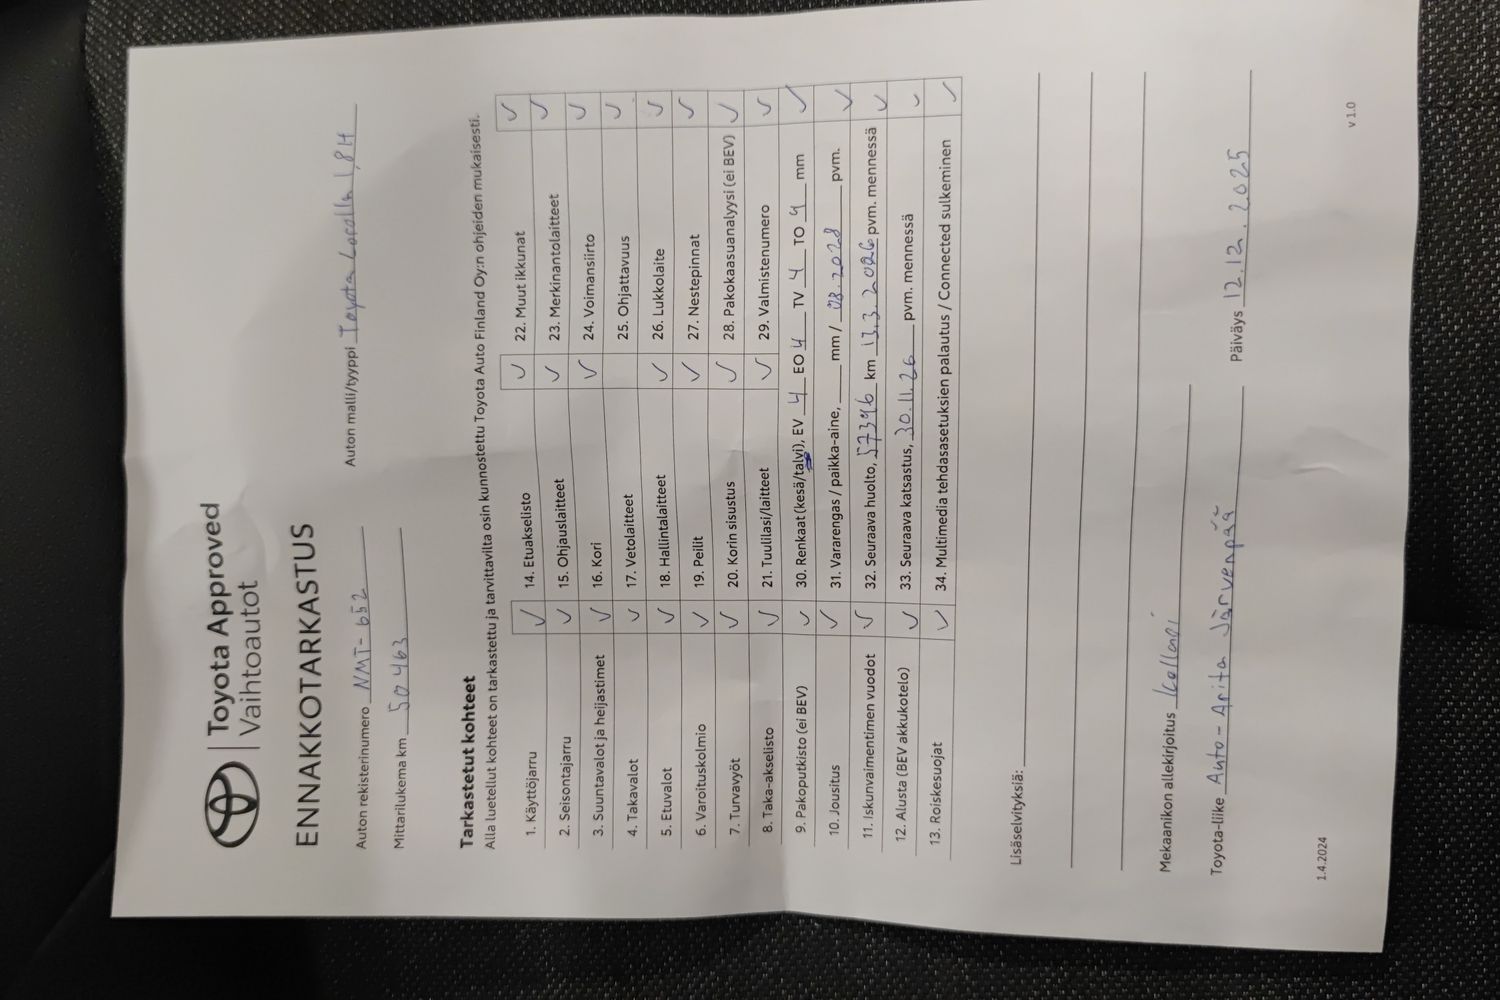 Toyota Approved
Vaihtoautot
ENNAKKOTARKASTUS
Auton rekisterinumero NMT-652 Auton malli/tyyppi Toyota Corolla 1,8H
Mittarilukema km 50 463
Tarkastetut kohteet
Alla luetellut kohteet on tarkastettu ja tarvittavilta osin kunnostettu Toyota Auto Finland Oy:n ohjeiden mukaisesti.
1. Käyttöjarru ✓ 14. Etuakselisto ✓ 22. Muut ikkunat ✓
2. Seisontajarru ✓ 15. Ohjauslaitteet ✓ 23. Merkinantolaitteet ✓
3. Suuntavalot ja heijastimet ✓ 16. Kori ✓ 24. Voimansiirto ✓
4. Takavalot ✓ 17. Vetolaitteet 25. Ohjattavuus ✓
5. Etuvalot ✓ 18. Hallintalaitteet ✓ 26. Lukkolaite ✓
6. Varoituskolmio ✓ 19. Peilit ✓ 27. Nestepinnat ✓
7. Turvavyöt ✓ 20. Korin sisustus ✓ 28. Pakokaasuanalyysi (ei BEV) ✓
8. Taka-akselisto ✓ 21. Tuulilasi/laitteet ✓ 29. Valmistenumero ✓
9. Pakoputkisto (ei BEV) ✓ 30. Renkaat (kesä/talvi), EV 4 EO 4 TV 4 TO 4 mm ✓
10. Jousitus ✓ 31. Vararengas / paikka-aine, mm / 08.2028 pvm. ✓
11. Iskunvaimentimen vuodot ✓ 32. Seuraava huolto, 57396 km 13.3.2026 pvm. mennessä ✓
12. Alusta (BEV akkukotelo) ✓ 33. Seuraava katsastus, 30.11.26 pvm. mennessä ✓
13. Roiskesuojat ✓ 34. Multimedia tehdasasetuksien palautus / Connected sulkeminen ✓
Lisäselvityksiä:
Mekaanikon allekirjoitus
Toyota-liike Auto-Arita Järvenpää Päiväys 12.12.2025
1.4.2024 v 1.0